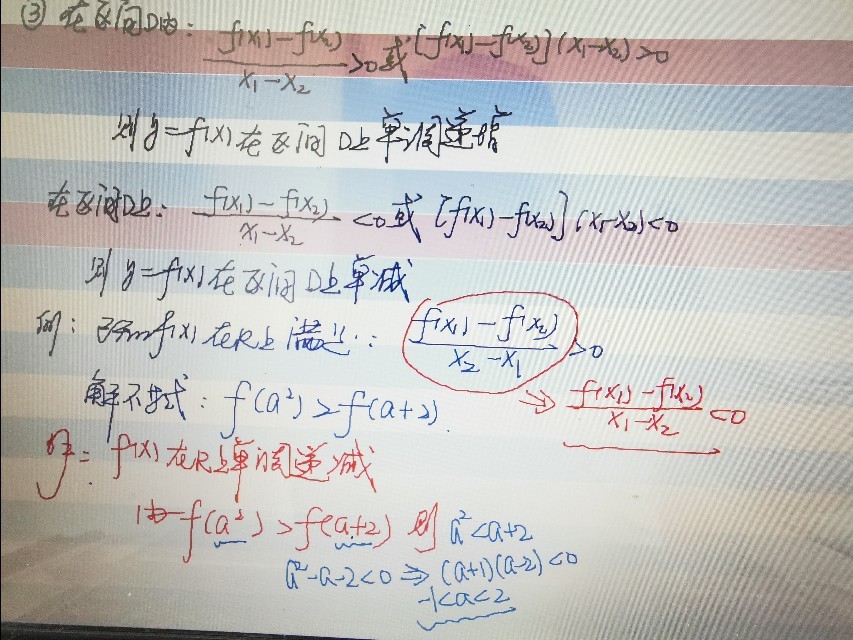 ③ 在区间D内: f(x₁)-f(x₂)/x₁-x₂ >0或[f(x₁)-f(x₂)](x₁-x₂)>0
则y=f(x)在区间D上单调递增
在区间D上: f(x₁)-f(x₂)/x₁-x₂ <0或[f(x₁)-f(x₂)](x₁-x₂)<0
则y=f(x)在区间D上单减
例: 已知f(x)在R上满足: f(x₁)-f(x₂)/x₂-x₁ >0
⇒ f(x₁)-f(x₂)/x₁-x₂ <0
解不等式: f(a²)>f(a+2).
f(x)在R上单调递减
由f(a²)>f(a+2) 则 a²<a+2
a²-a-2<0 ⇒ (a+1)(a-2)<0
-1<a<2